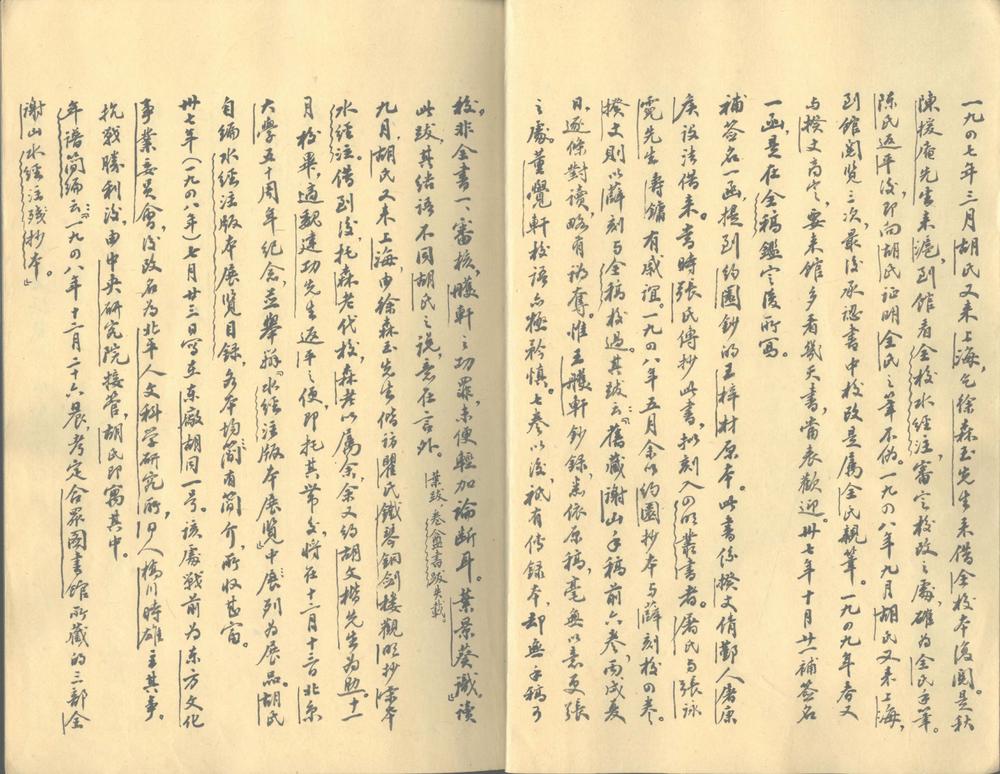 一九四七年三月胡氏又来上海，乞徐森玉先生来借全校本复阅。是秋
陳援庵先生来滬，到館看全校水经注，審定校改之處，確为全氏手筆。
陈氏返平后，即向胡氏证明全氏之筆不伪。一九四八年九月胡氏又来上海，
到館阅览三次，最后承認書中校改是属全氏親筆。一九四九年春又
与揆丈商定，要来館多看幾天書，當表歡迎。卅七年十月廿一補签名
一函，是在全稿鑑定后所写。
補签名一函，提到约園鈔的王梓材原本。此書係揆丈倩鄞人屠康
侯設法借来。当时張氏傳抄此書，拟刻入四明叢書者。屠氏与張詠
霓先生壽鏞有戚谊。一九四八年五月余以约園抄本与薛刻校四卷。
揆丈則以薛刻与全稿校過。其跋云：“舊藏謝山手稿前六卷，丙戌夏
日，逐條對读，略有訛奪。惟王艧軒鈔録，悉依原稿，毫無以意更張
之處。董覺軒校语亦極矜慎。七卷以后，祇有傳録本，却無手稿可
校。非全書一一審核，艧軒之功罪，未便輕加论断耳。葉景葵識”读
此跋，其结语不同胡氏之说，意在言外。葉跋，卷盦書跋失載。
九月，胡氏又来上海，由徐森玉先生偕访瞿氏铁琴铜剑楼觀明抄宋本
水经注。借到后，托森老代校，森老以属余，余又约胡文楷先生为助。十一
月校畢，適魏建功先生返平之便，即托其带交，将在十二月十三日北京
大學五十周年纪念，並舉辦“水经注版本展覽”中展列为展品。胡氏
自编水经注版本展览目録，各本均简有简介，所收甚富。
卅七年（一九四八年）七月廿三日写于东廠胡同一号。该處战前为东方文化
事業委員會，后改名为北平人文科学研究所，日人橋川時雄主其事。
抗战勝利后由中央研究院接管，胡氏即寓其中。
年谱简编云：“一九四八年十二月二十六晨，考定合眾圖書館所藏的三部全
謝山水经注残抄本。”